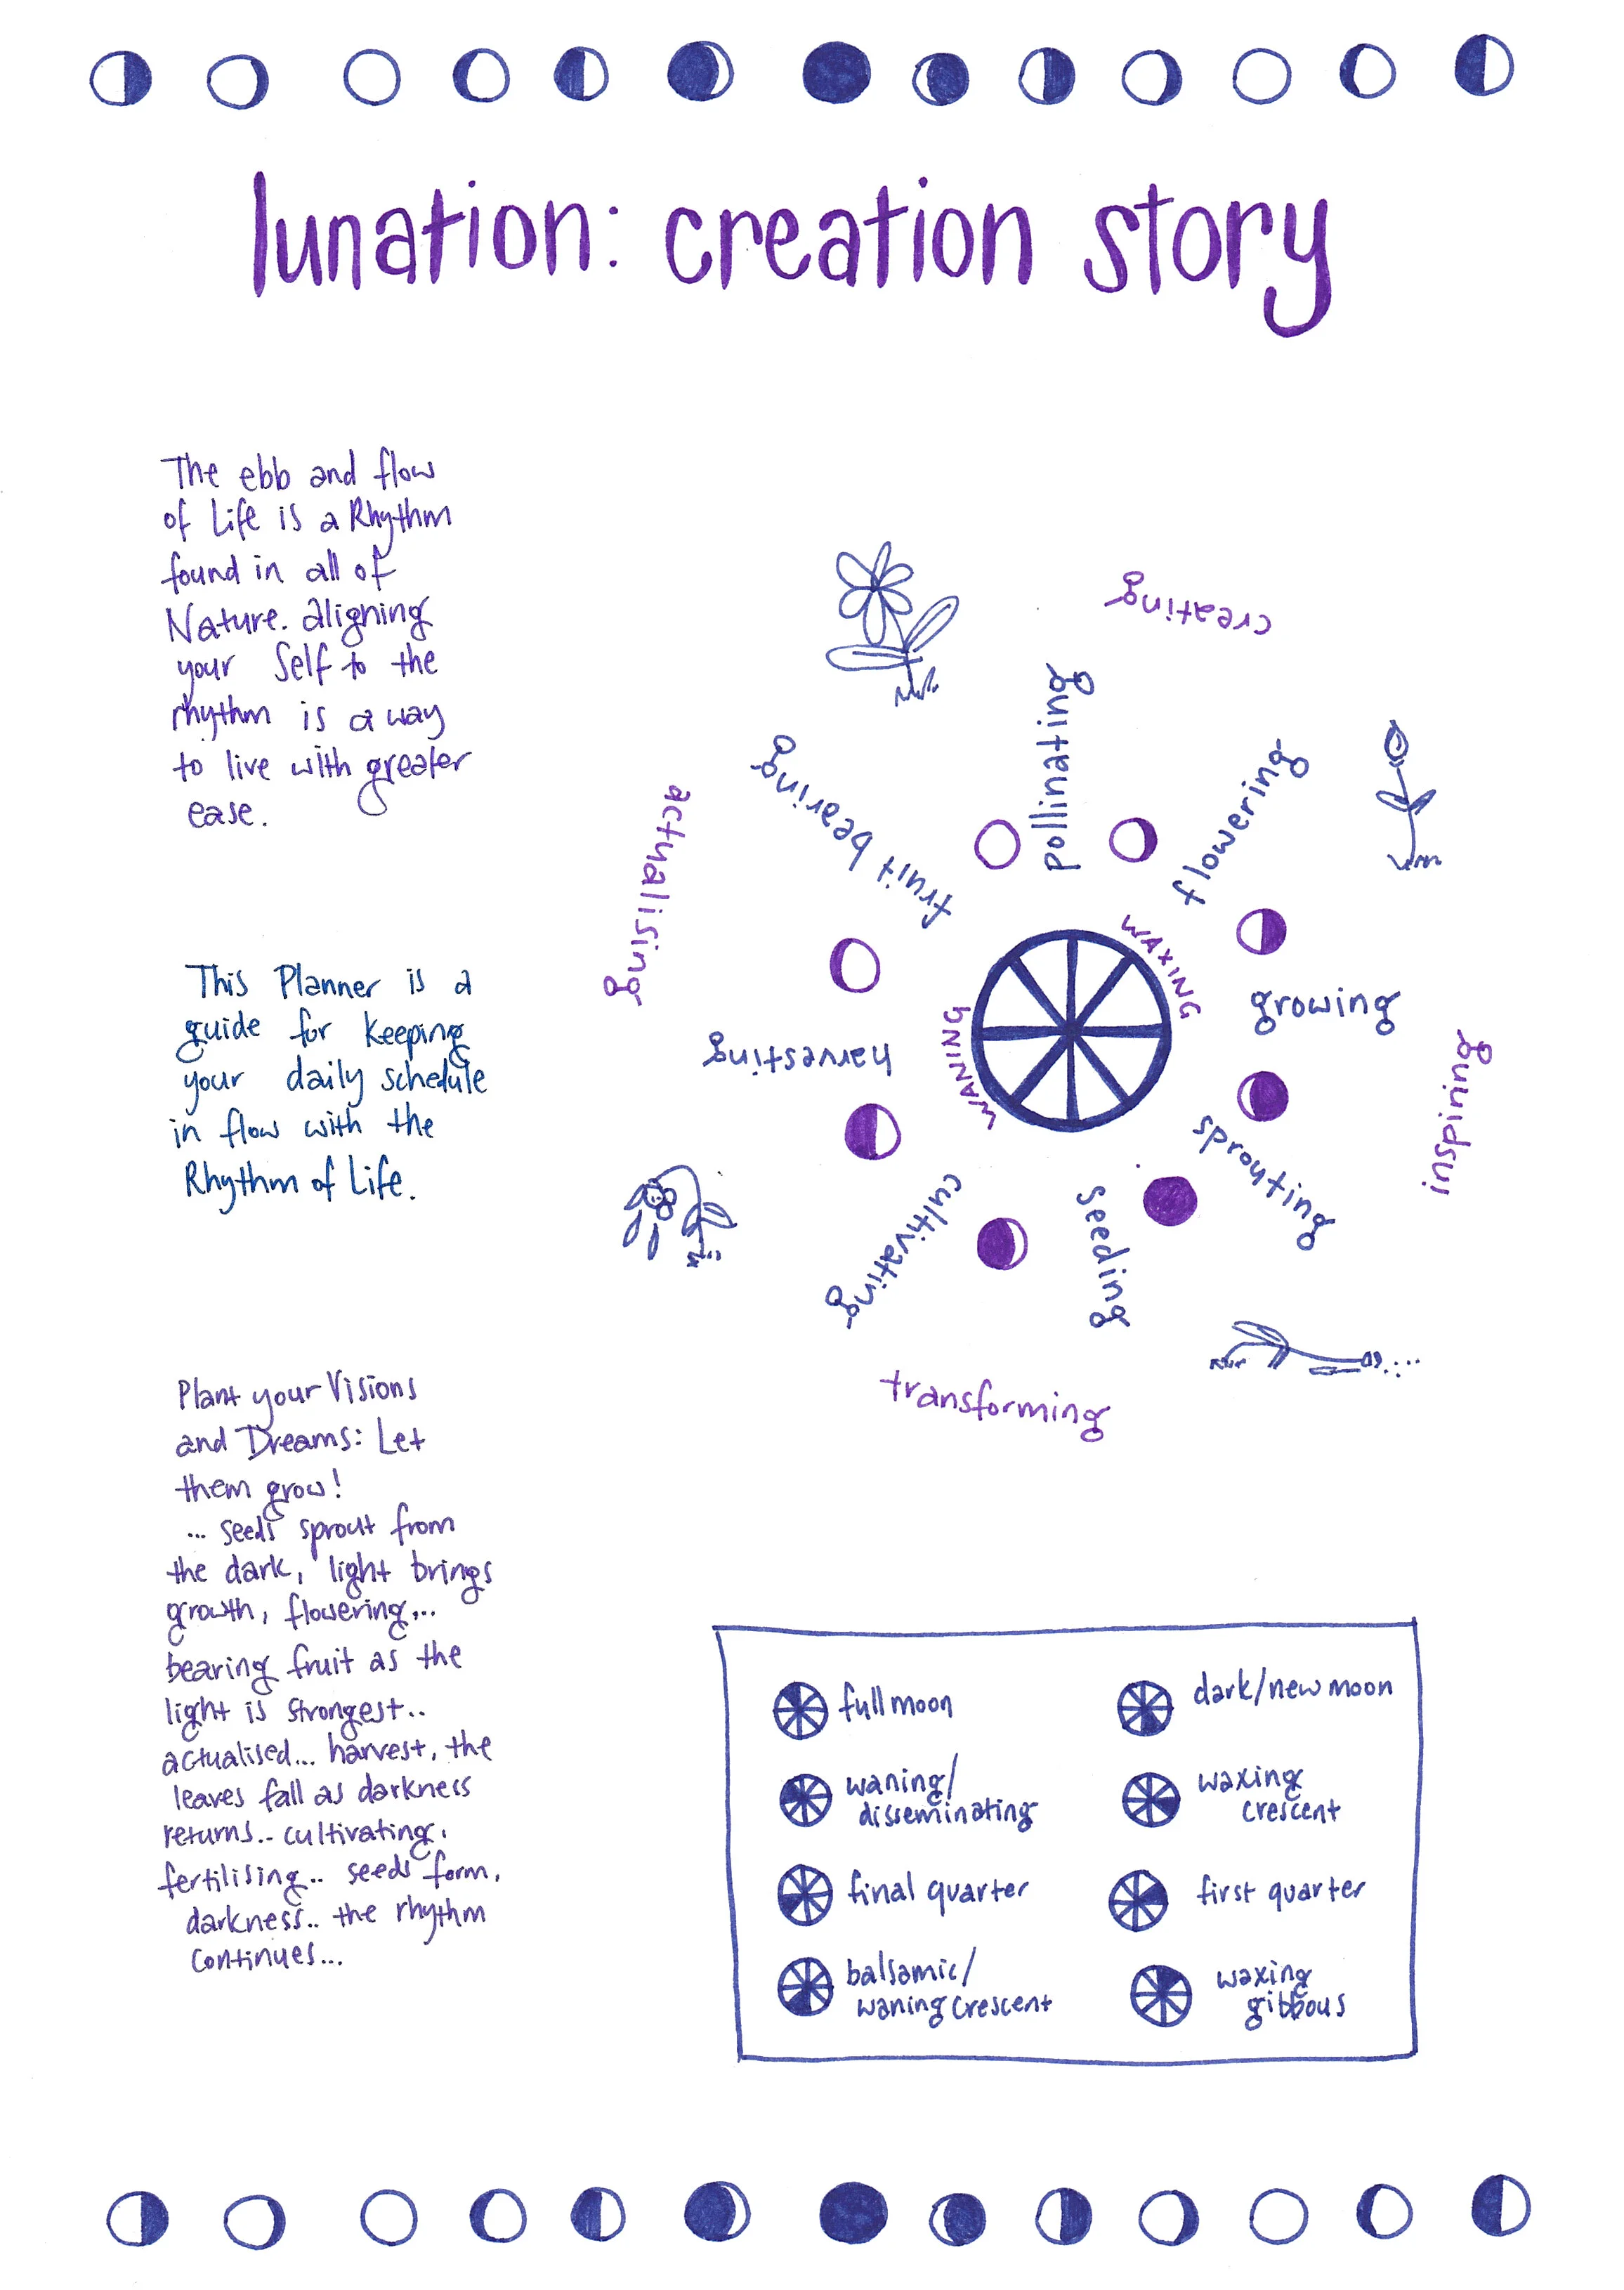 lunation: creation story
The ebb and flow
of Life is a Rhythm
found in all of
Nature. aligning
your Self to the
rhythm is a way
to live with greater
ease.
This Planner is a
guide for keeping
your daily schedule
in flow with the
Rhythm of Life.
Plant your Visions
and Dreams: Let
them grow!
... seeds sprout from
the dark, light brings
growth, flowering...
bearing fruit as the
light is strongest..
actualised... harvest, the
leaves fall as darkness
returns.. cultivating,
fertilising.. seeds form,
darkness.. the rhythm
continues...
creating
pollinating
flowering
growing
inspiring
sprouting
seeding
transforming
cultivating
harvesting
actualising
fruit bearing
WAXING
WANING
full moon
dark/new moon
waning/
disseminating
waxing
crescent
final quarter
first quarter
balsamic/
waning crescent
waxing
gibbous